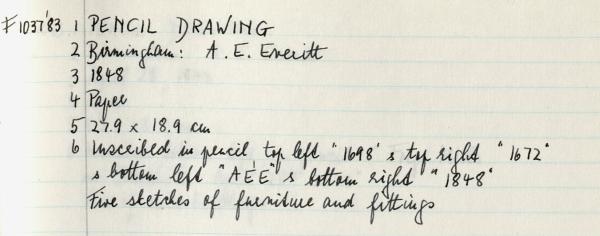 F1037'83 1 PENCIL DRAWING
2 Birmingham: A. E. Everitt
3 1848
4 Paper
5 27.9 x 18.9 cm
6 Inscribed in pencil top left "1698" & top right "1672"
& bottom left "AEE" & bottom right "1848"
Five sketches of furniture and fittings